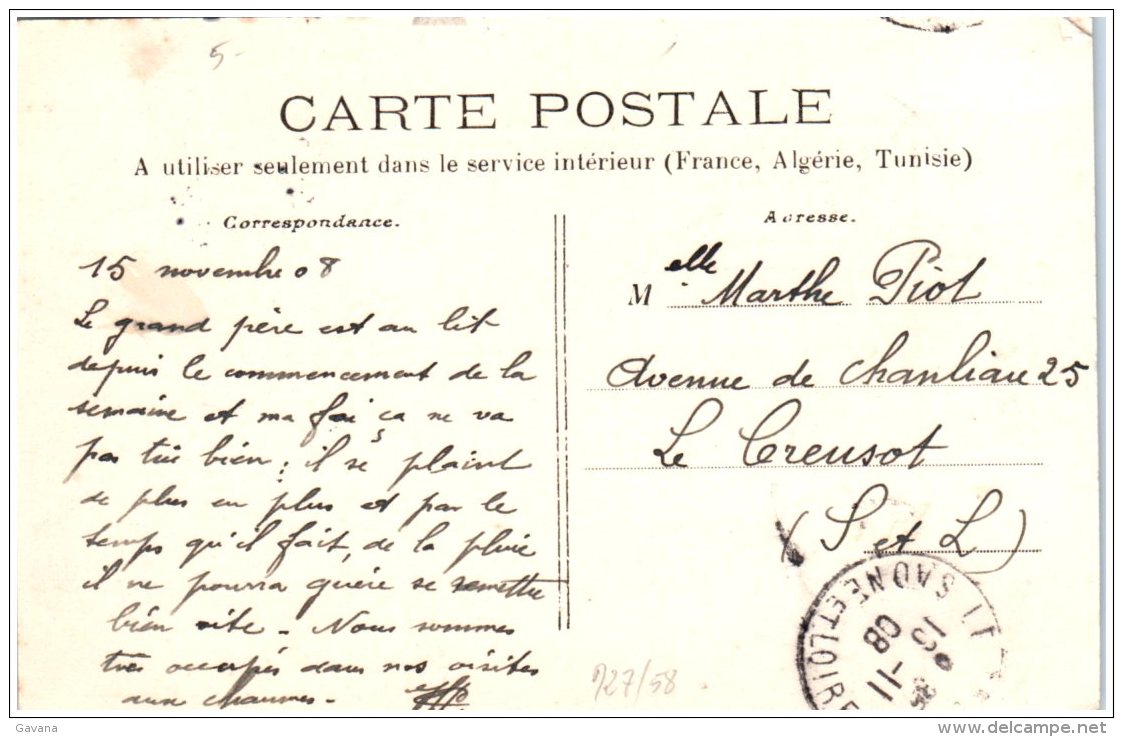 5-
CARTE POSTALE
A utiliser seulement dans le service intérieur (France, Algérie, Tunisie)
Correspondance.
15 novembre 08
Le grand père est au lit
depuis le commencement de la
semaine et ma foi ça ne va
pas très bien ; il se plaint
de plus en plus et par le
temps qu'il fait, de la pluie
il ne pourra guère se remettre
bien vite - Nous sommes
très occupés dans nos visites
aux chaumes -
Adresse.
Melle Marthe Piot
Avenue de Chanliau 25
Le Creusot
(S et L)
SAONE ET LOIRE
15 -11
08
127/58
Gavana
www.delcampe.net